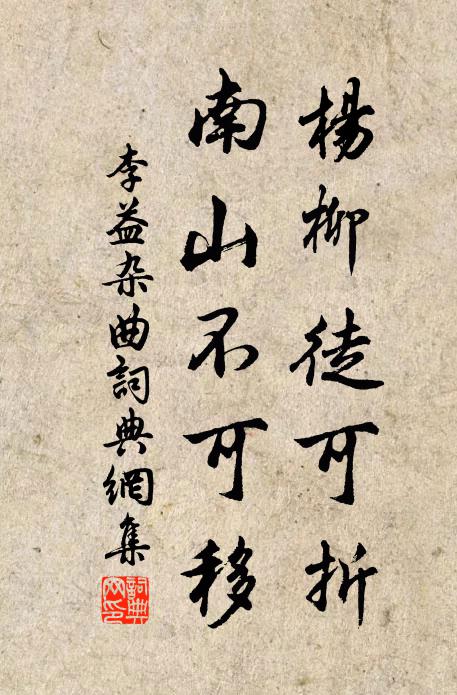 楊柳徒可折
南山不可移
李益杂曲詞典網集
詞典網印